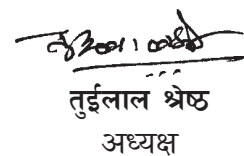 तुईलाल श्रेष्ठ
अध्यक्ष